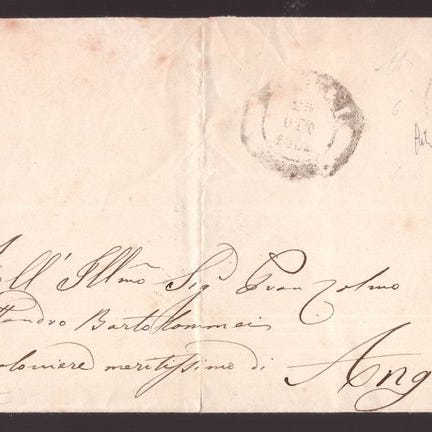 OTT
All' Illmo Sigr Pron Colmo
sandro Bartolommei
aloniere meritissimo di Ang